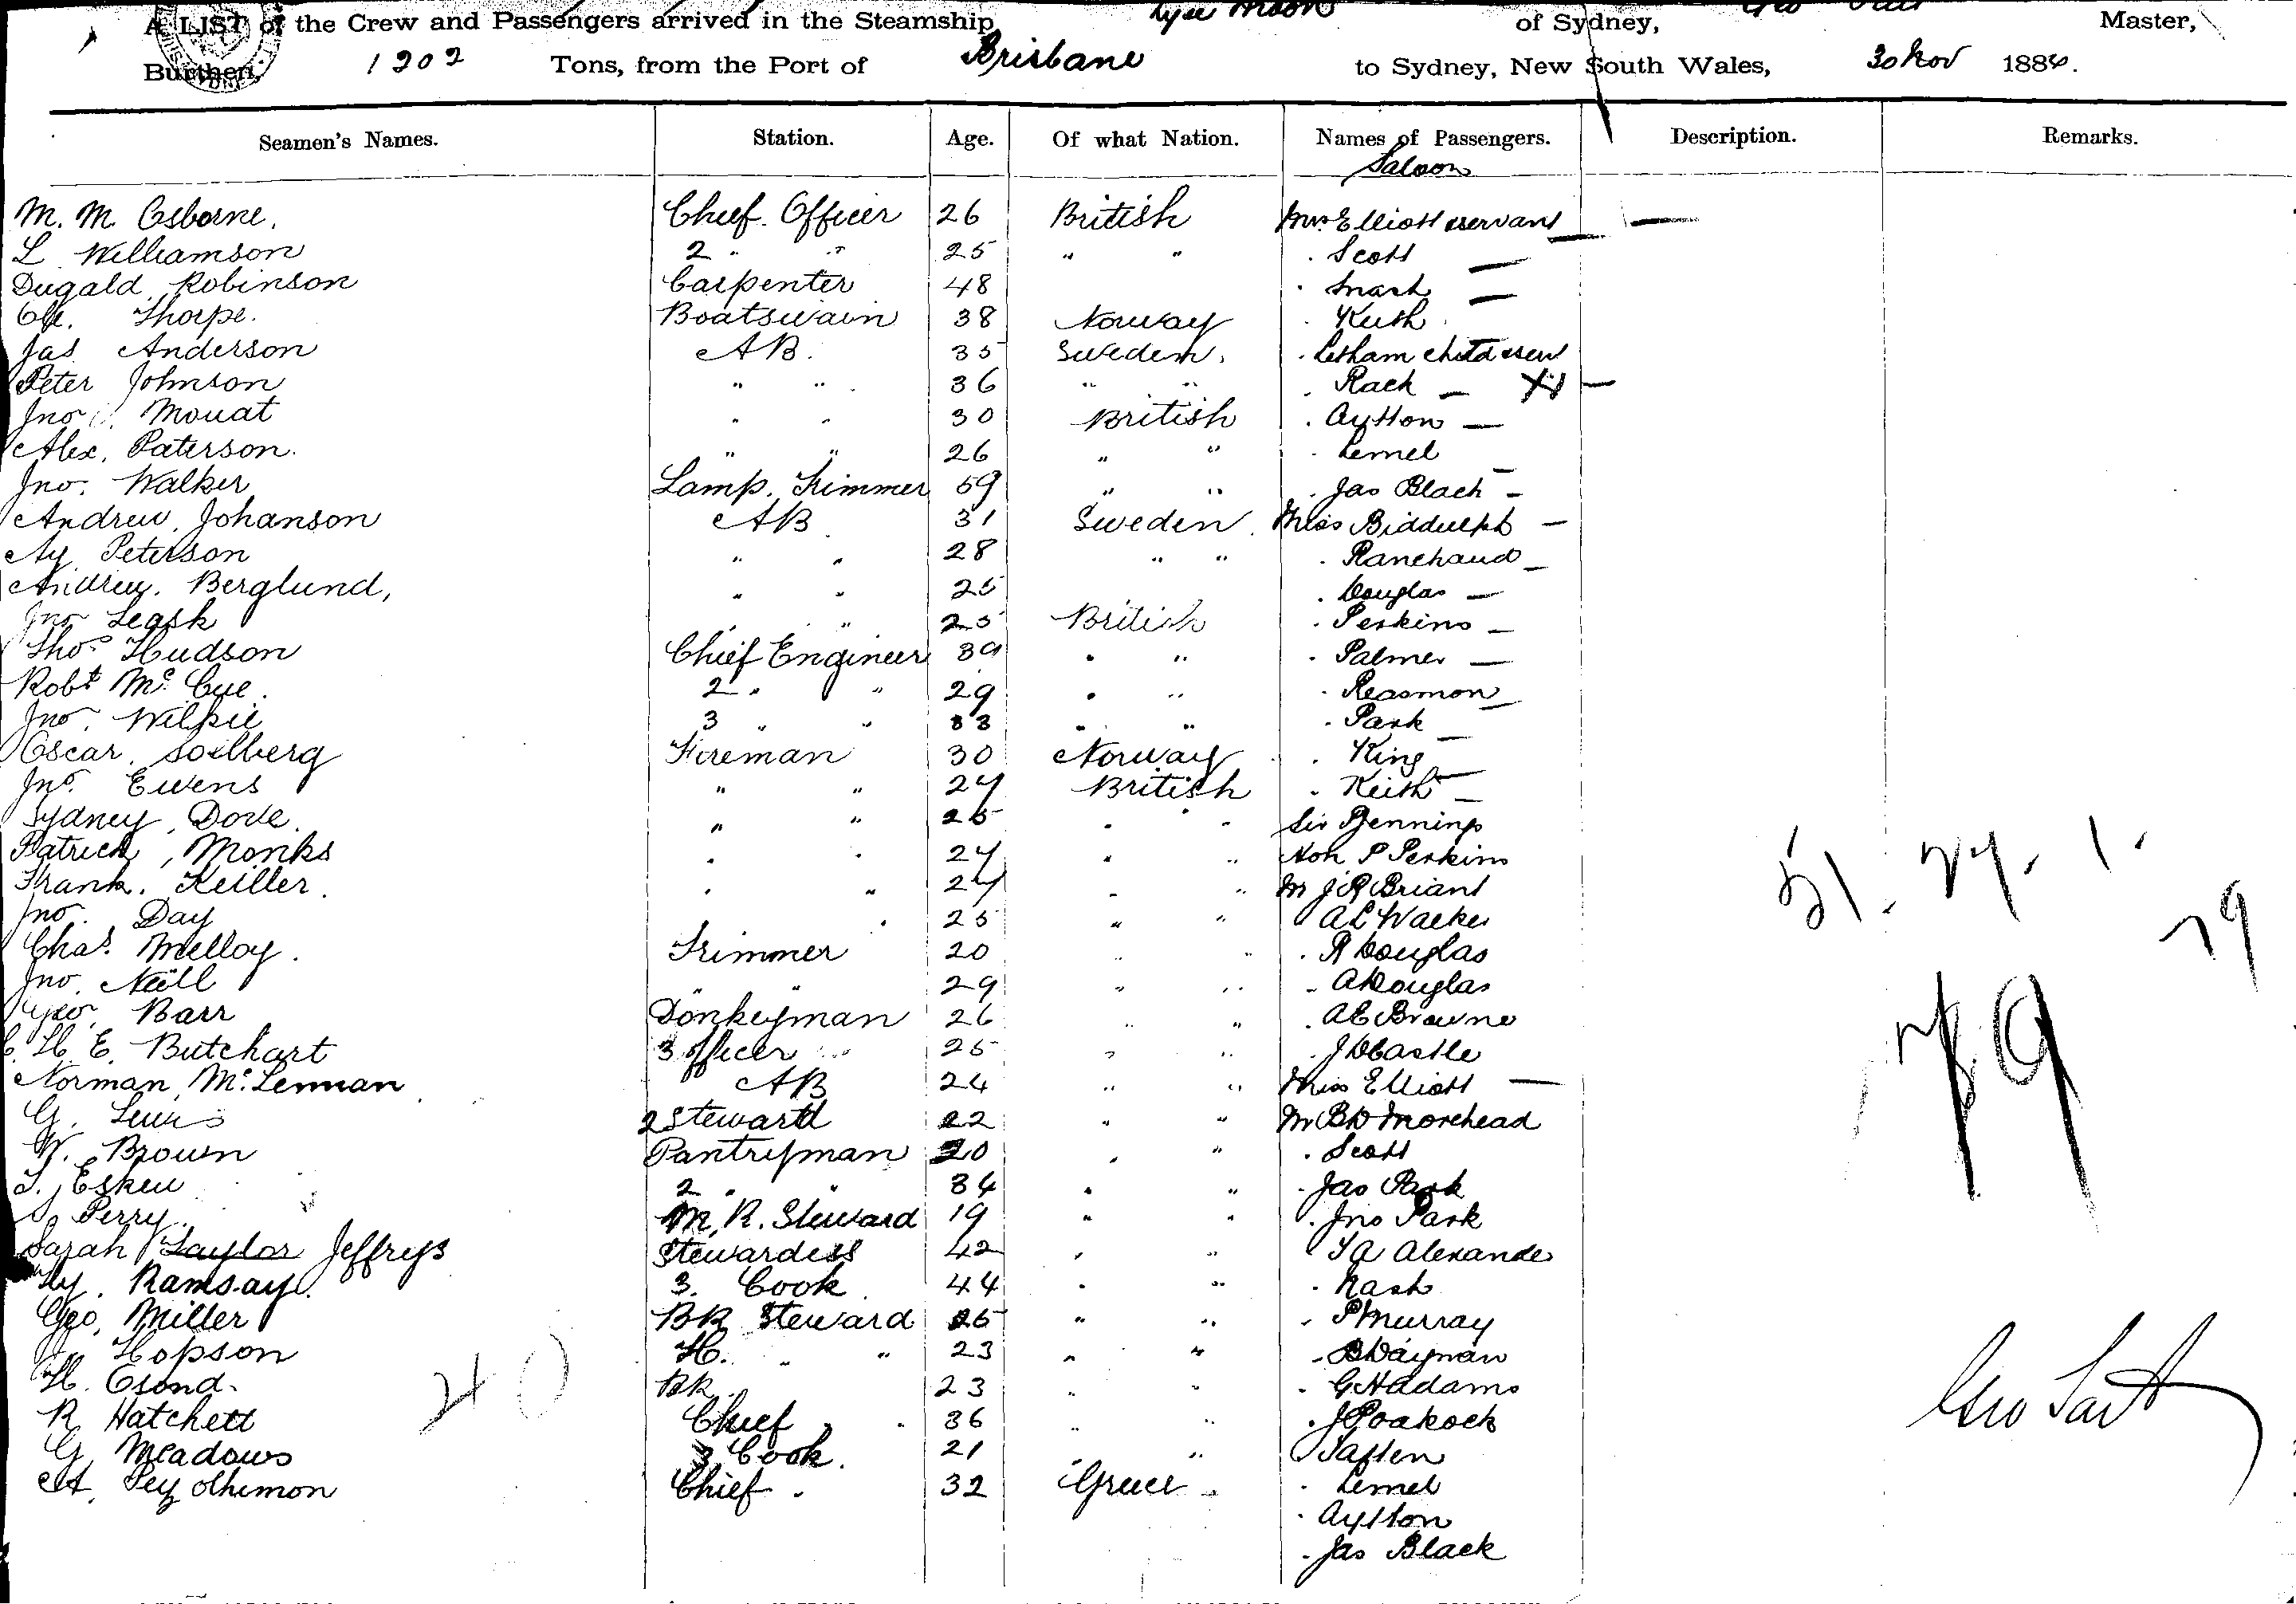 A LIST of the Crew and Passengers arrived in the Steamship Lyee Moon of Sydney, Master,
Burthen, 1202 Tons, from the Port of Brisbane to Sydney, New South Wales, 30 Nov 1884.
Seamen's Names. Station. Age. Of what Nation. Names of Passengers. Description. Remarks.
Saloon
M. M. Osborne. Chief Officer 26 British Mrs. Elliott servant —
L Williamson 2 " " 25 " " . Scott —
Dugald Robinson Carpenter 48 . —
Thorpe. Boatswain 38 Norway .
Jas Anderson AB. 35 Sweden. .
Peter Johnson " " 36 " " . Rack — —
Jno Mouat " " 30 British . Aytton —
Alex. Paterson. " " 26 " " . Lemel —
Jno. Walker Lamp. Trimmer 59 " " . Jas Black —
Andrew Johanson AB 31 Sweden. Miss Biddulph —
Peterson " " 28 " " . Ranchaud —
Andrew. Berglund, " " 25 . Douglas —
Jno Leask " " 25 British . Perkins —
Thos Hudson Chief Engineer 39 " " . Palmer —
Robt McCue. 2 " " 29 " " . —
Jno. Wilkie 3 " " 33 " " . Park —
Oscar. Soelberg Fireman 30 Norway . King —
Jno. Ewens " " 24 British . Keith —
Sydney, Dove. " " 25 " " Sir Jennings
Patrick, Monks " " 24 " " Hon P Perkins
Frank. Keiller. " " 24 " " Mr J R Briant
Jno. Day " 25 " " A L Walker
Chas. Melloy. Trimmer 20 " " . R Douglas
Jno. Neill " " 29 " " . A Douglas
Geo. Barr Donkeyman 26 " " . A E Browne
H. E. Butchart 3 officer 25 " " . J D Castle
Norman, McLennan AB 24 " " Miss Elliott —
G. Lewis 2 Steward 22 " " Mr B D Morehead
W. Brown Pantryman 20 " " . Scott
Eskew 2 " " 34 " " . Jas Park
Perry. M. R. Steward 19 " " . Jno Park
Sarah Taylor Jeffrys Stewardess 42 " " Alexander
Hy. Ramsay. 3. Cook 44 " " . Nash
Geo, Miller BR Steward 25 " " . P Murray
Hopson H. " " 23 " " . Wayman
H. Osond. BR. 23 " " . G H Adams
R Hatchett Chief " 36 " " .
G. Meadows 3 Cook. 21 "
A. Chief " 32 Greece . Lemel
. Aytton
. Jas Black
51. 27. 1.
79
79
40